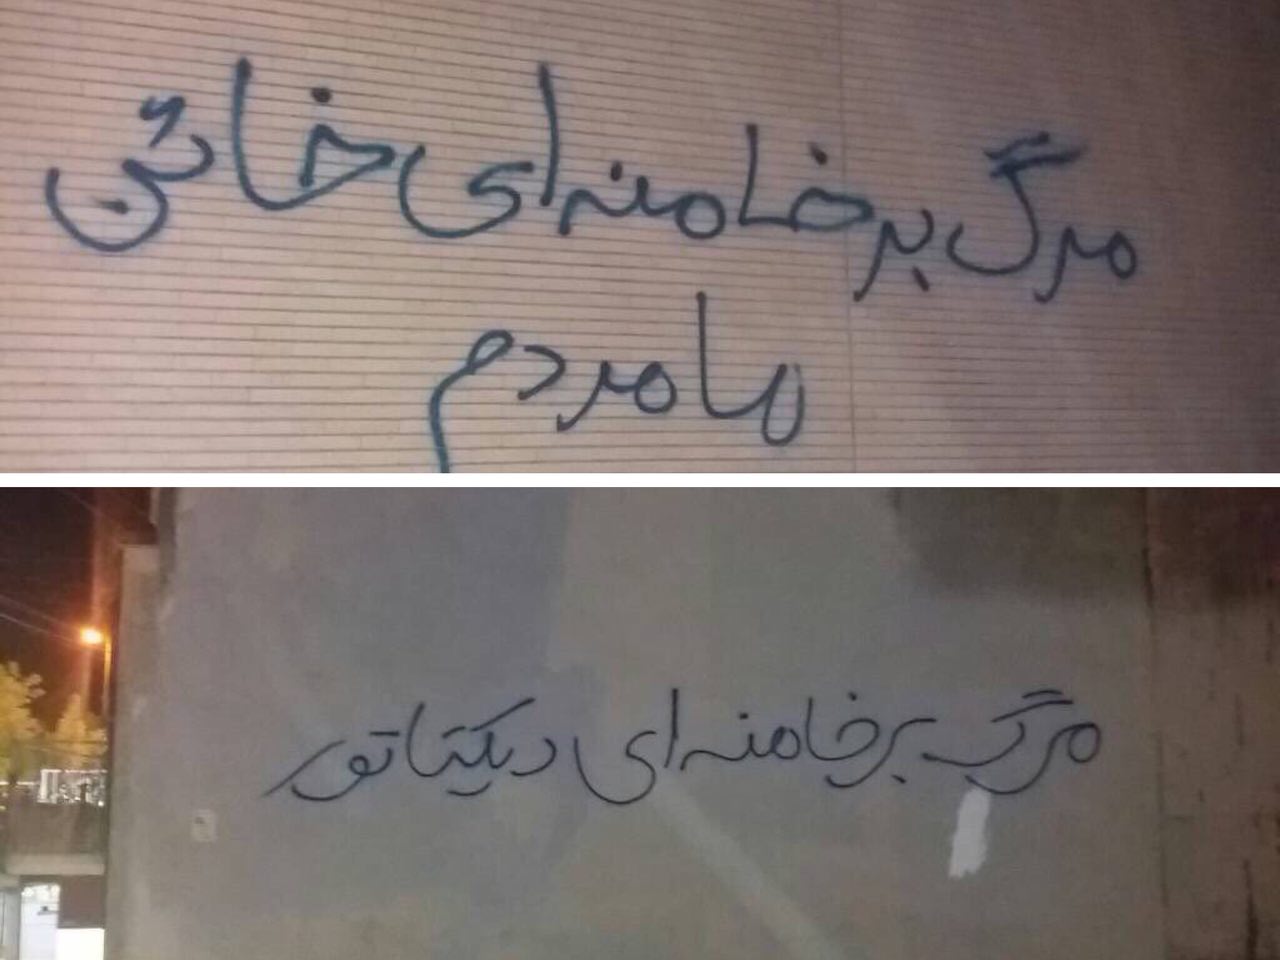 مرگ بر خامنه ای خائن
ما مردم
مرگ بر خامنه ای دیکتاتور